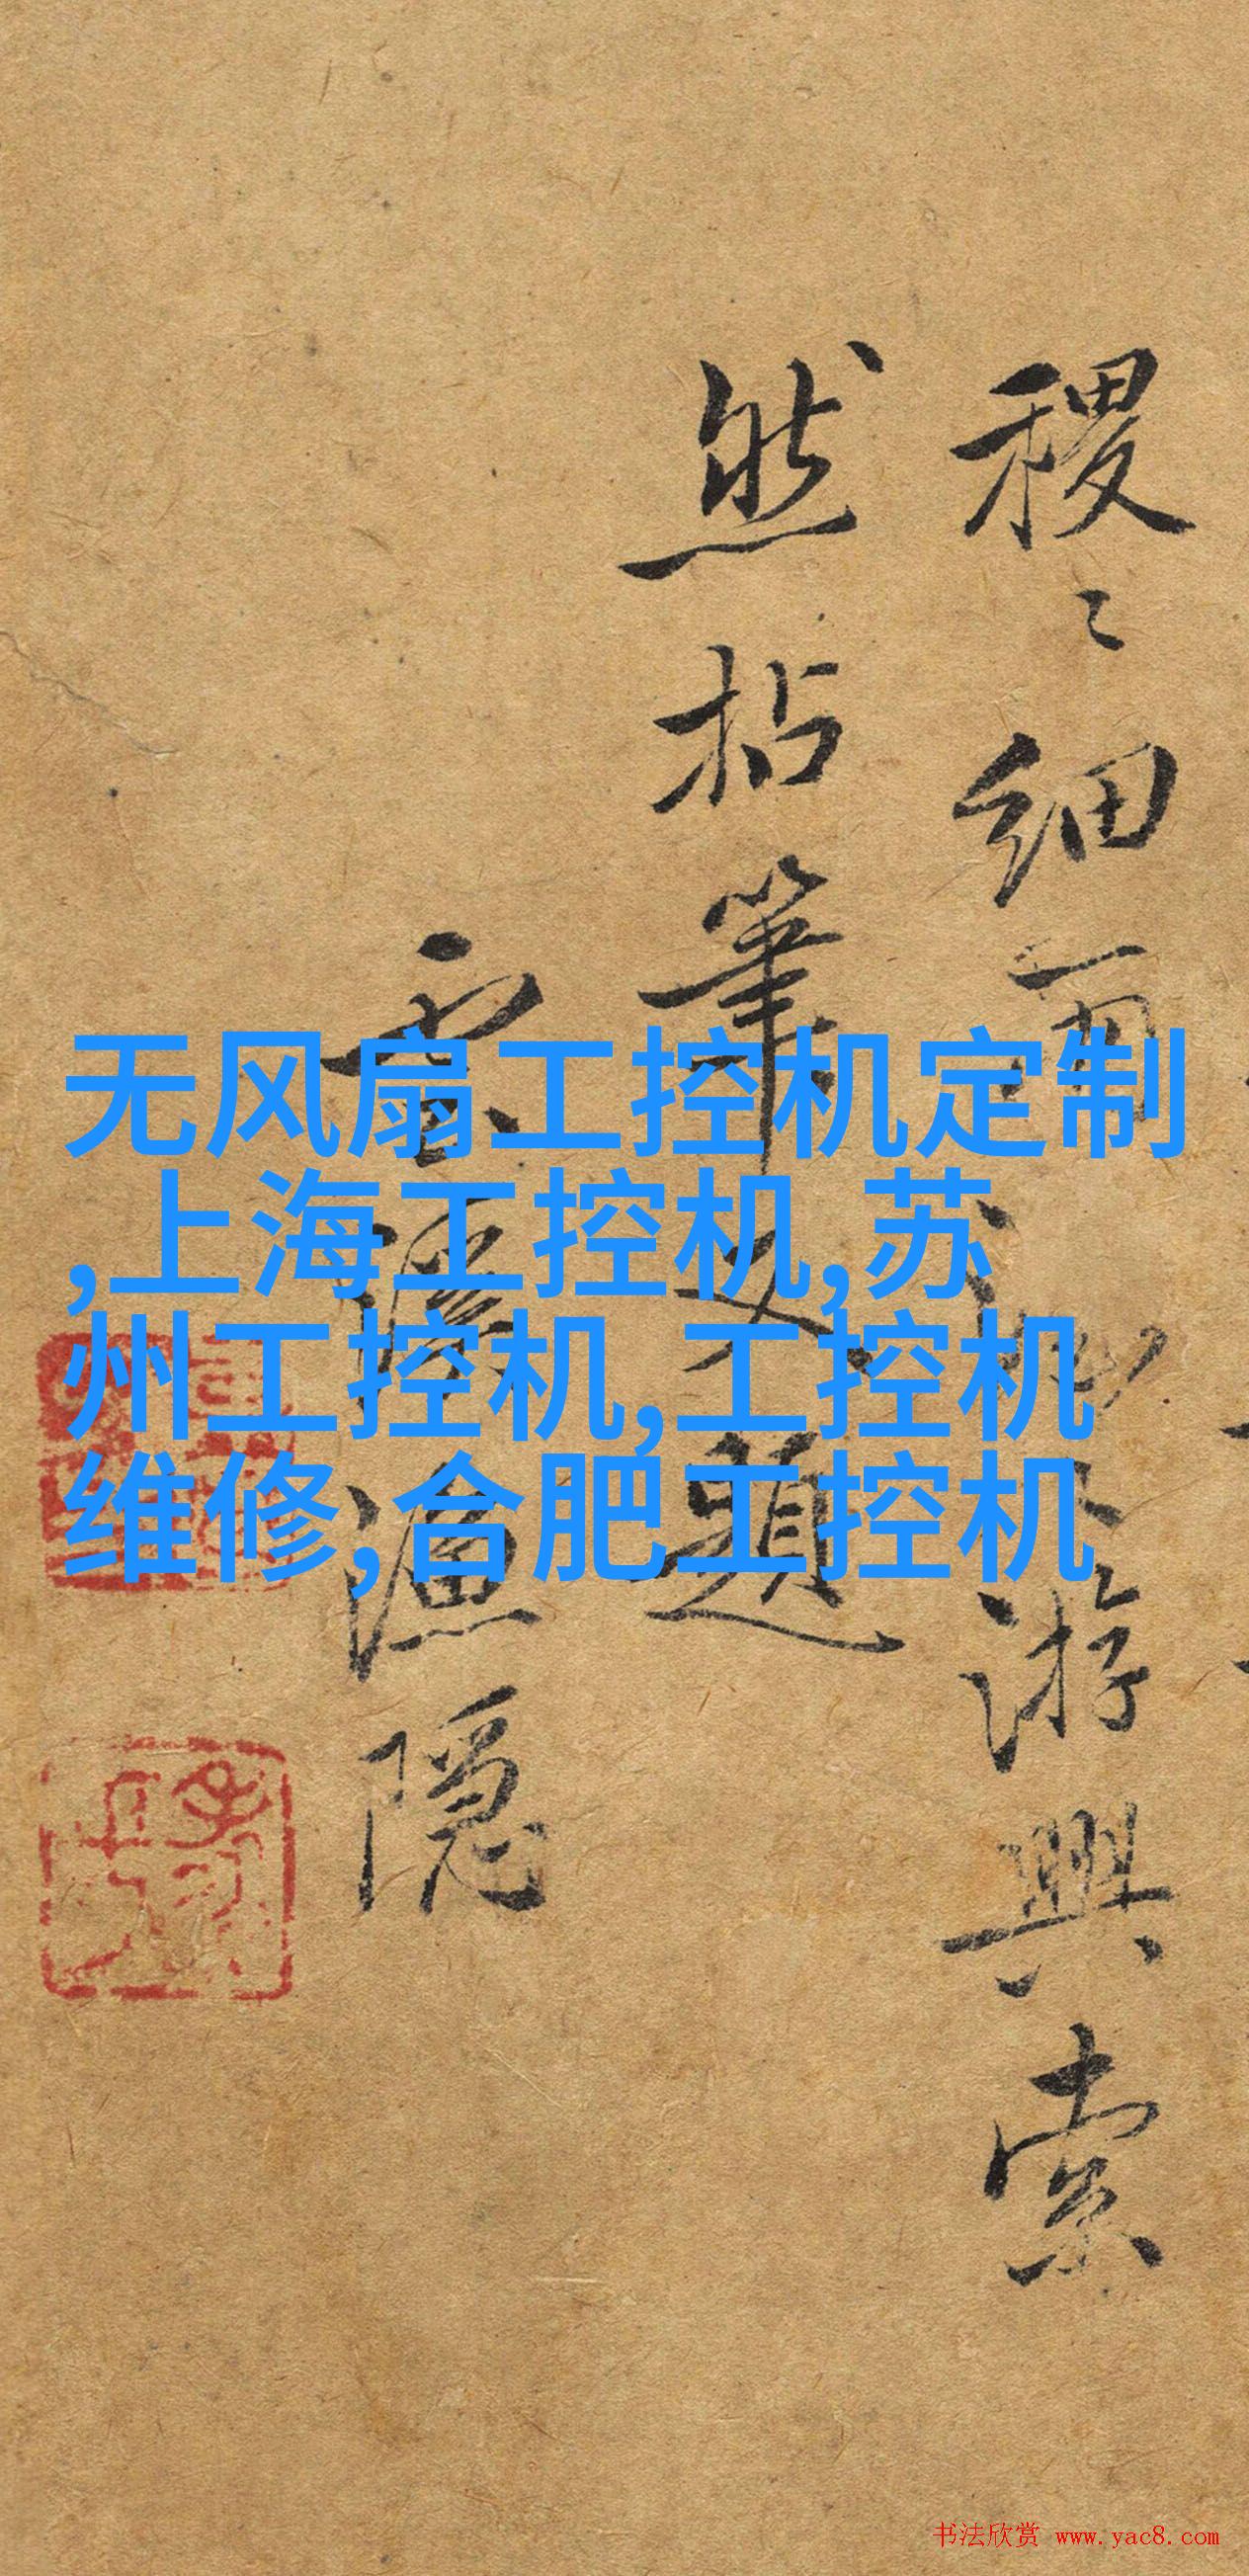 无风扇工控机定制
,上海工控机,苏
州工控机,工控机
维修,合肥工控机
稷〻细雨
游興索
然拈筆又題
雲溪漁隱
书法欣赏 www.yac8.com